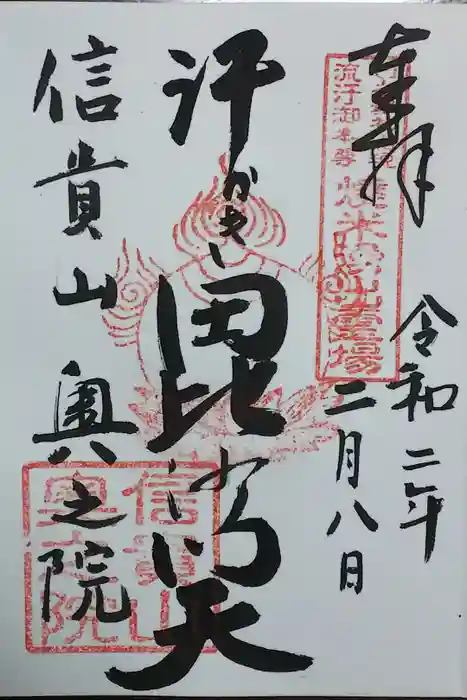 奉拝
令和二年
二月八日
汗かき毘沙門天
信貴山奥之院
流汗御本尊
信貴山
奥之院